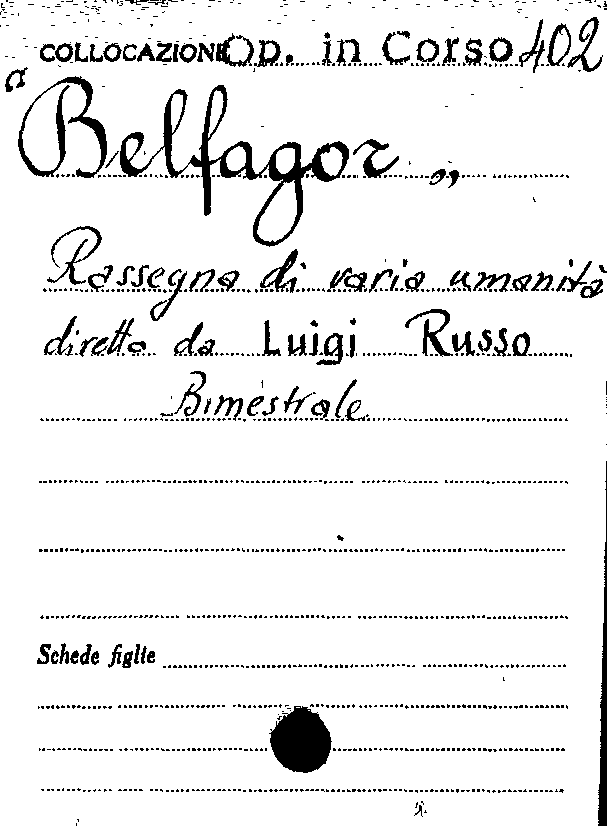 COLLOCAZIONE Op. in Corso 402
"Belfagor„
Rassegna di varia umanità
diretta da Luigi Russo
Bimestrale
Schede figlie